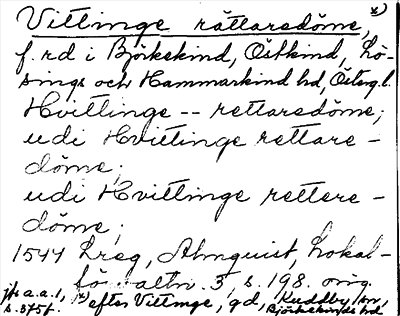 Vittinge rättaredöme, x)
f. rd i Björkekind, Östkind, Lö-
sings och Hammarkind hd, Östergl.
Hvittinge -- rettaredöme;
udi Hvittinge rettare-
döme;
udi Hvittinge rettere-
döme;
1544 Lreg, Almquist, Lokal-
förvaltn. 3, s. 198. orig.
jfr a.a. 1, x) efter Vittinge, gd, Kuddby sn,
s. 375f. Björkekinds hd